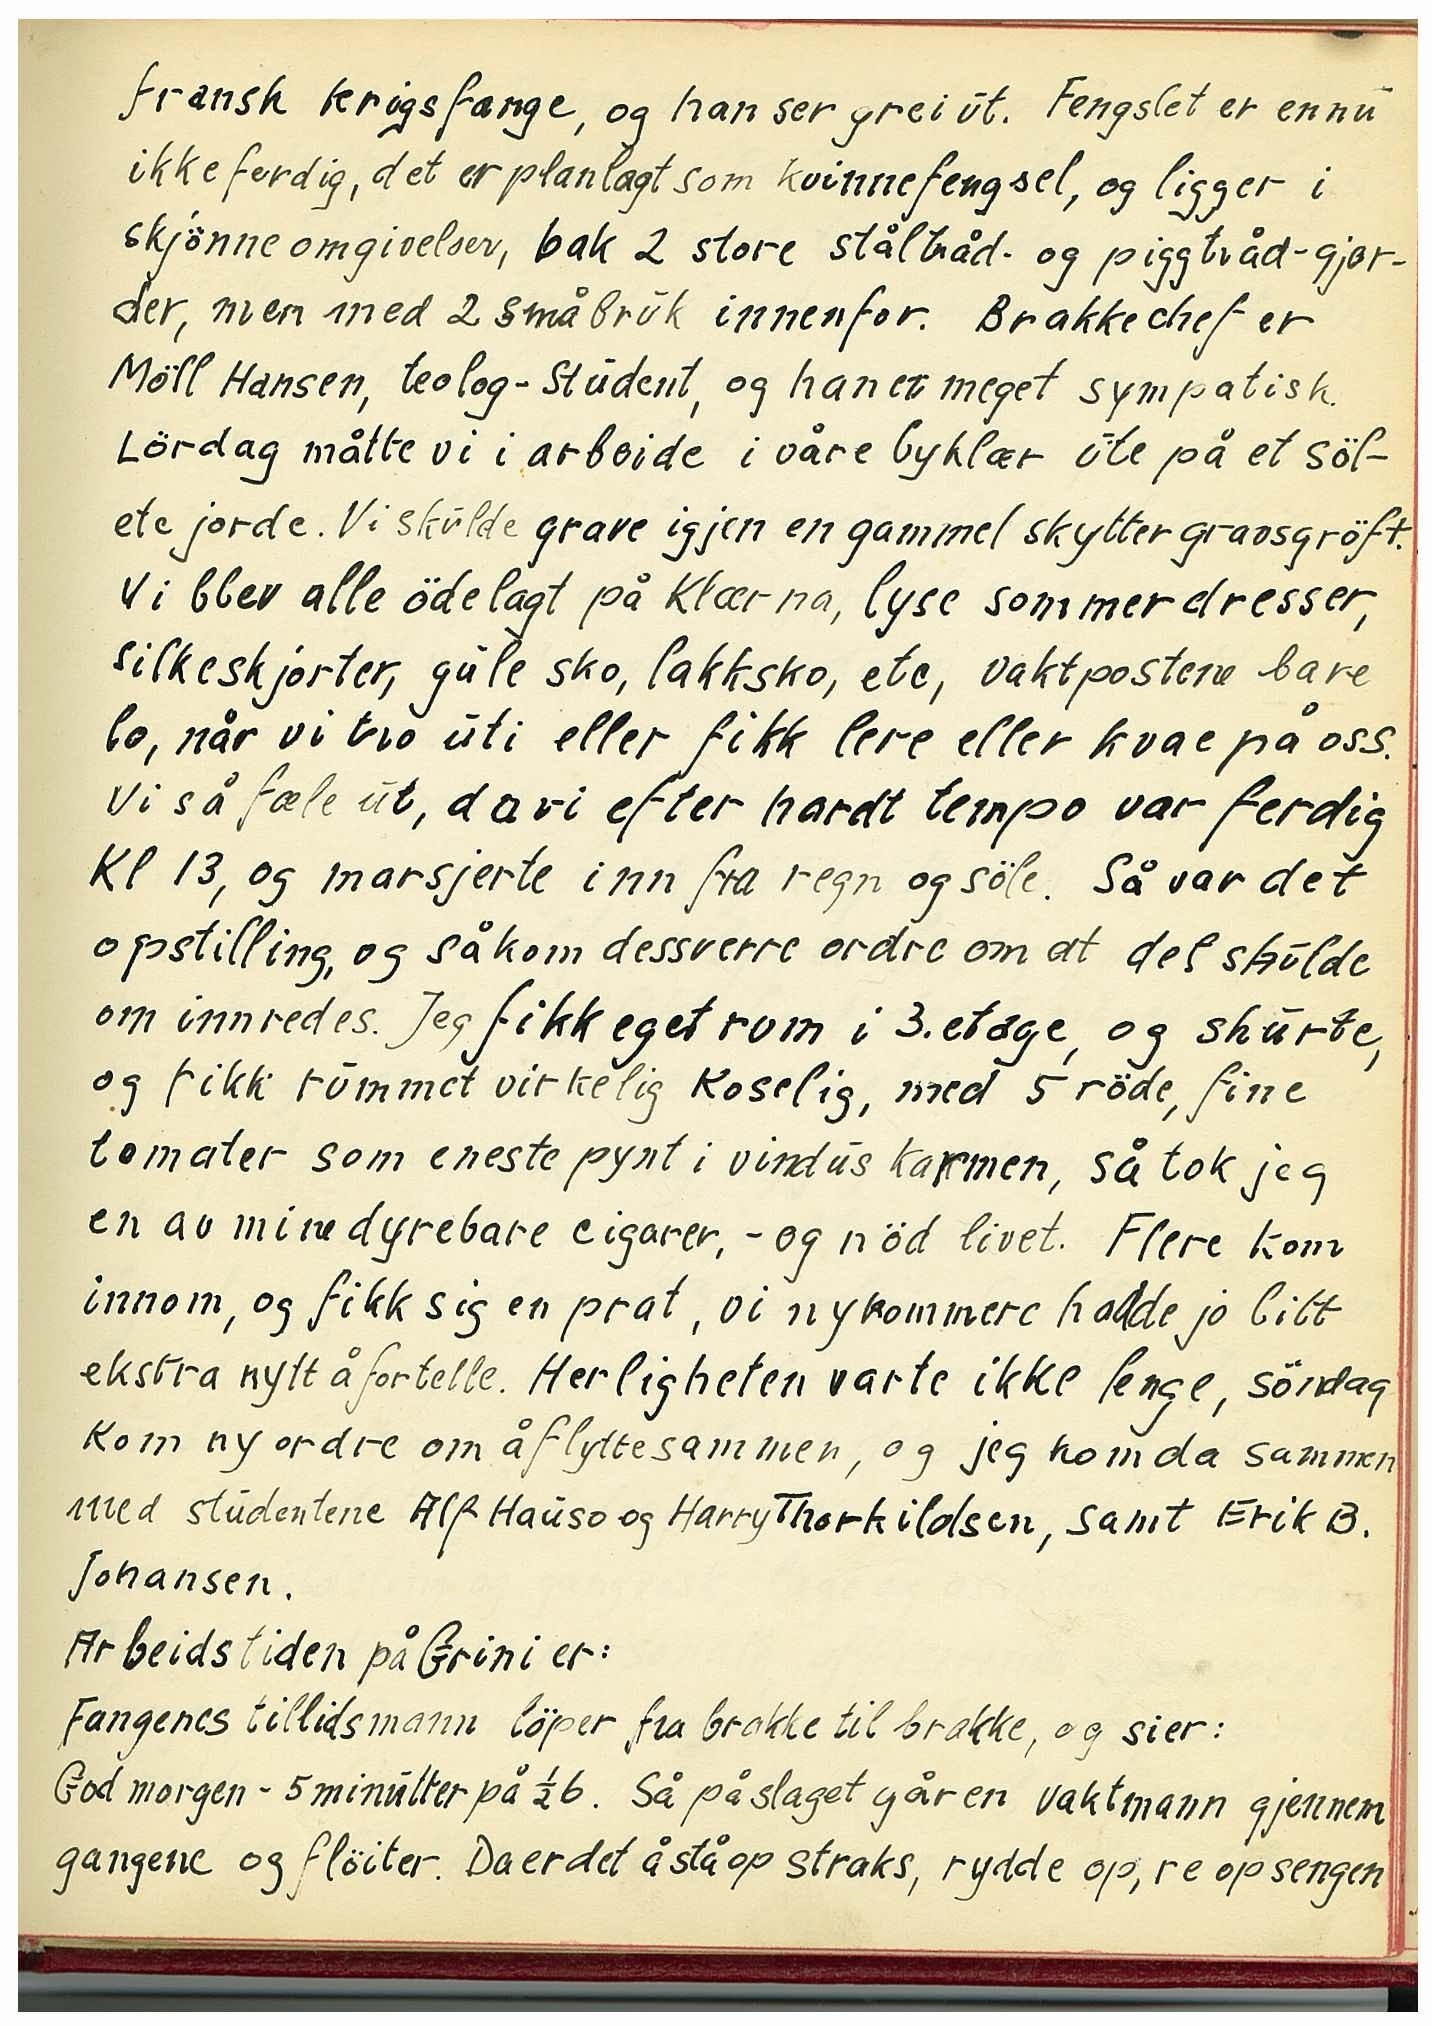 fransk krigsfange, og han ser grei ut. Fengslet er ennu
ikke ferdig, det er planlagt som kvinnefengsel, og ligger i
skjönne omgivelser, bak 2 store ståltråd- og piggtråd-gjer-
der, men med 2 småbruk innenfor. Brakkechef er
Möll Hansen, teolog-Student, og han er meget sympatisk.
Lördag måtte vi i arbeide i våre byklær ute på et söl-
ete jorde. Vi skulde grave igjen en gammel skyttergravsgröft.
Vi blev alle ödelagt på Klærna, lyse sommerdresser,
silkeskjorter, gule sko, lakksko, etc, vaktpostene bare
lo, når vi tro uti eller fikk lere eller kvae på oss.
Vi så fæle ut, da vi efter hardt tempo var ferdig
Kl 13, og marsjerte inn fra regn og söle. Så var det
opstilling, og så kom dessverre ordre om at det skulde
om innredes. Jeg fikk eget rum i 3. etage, og skurte,
og fikk rummet virkelig koselig, med 5 röde, fine
tomater som eneste pynt i vindus karmen, så tok jeg
en av mine dyrebare cigarer, - og nöd livet. Flere kom
innom, og fikk sig en prat, vi nykommere hadde jo litt
ekstra nytt å fortelle. Herligheten varte ikke lenge, söndag
kom ny ordre om å flytte sammen, og jeg kom da sammen
med studentene Alf Hauso og Harry Thorkildsen, samt Erik B.
Johansen.
Arbeidstiden på Grini er:
Fangenes tillidsmann löper fra brakke til brakke, og sier:
God morgen - 5 minutter på ½6. Så på slaget går en vaktmann gjennem
gangene og flöiter. Da er det å stå op straks, rydde op, re op sengen